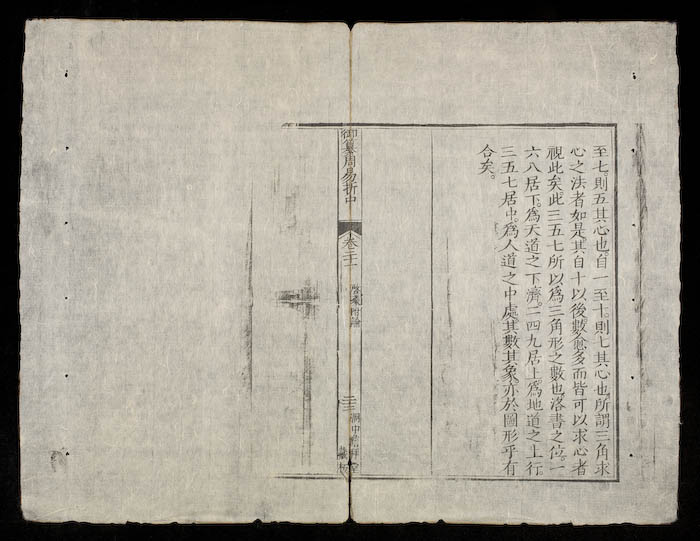 至七。則五其心也。自一至十。則七其心也。所謂三角求
心之法者如是。其自十以後。數愈多而皆可以求心者
視此矣。此三五七所以爲三角形之數也。洛書之位。一
六八居下。爲天道之下濟。二四九居上。爲地道之上行
三五七居中。爲人道之中處。其數其象。亦於圖形乎有
合矣。
御纂周易折中
卷二十一
啓蒙附論